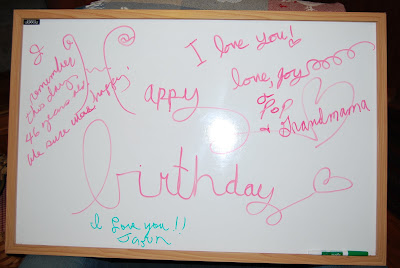 I
remember
this day
46 years ago
We sure were happy!
Happy
birthday
I love you!
love, joy
Pop
+ Grandmama
I Love you!!